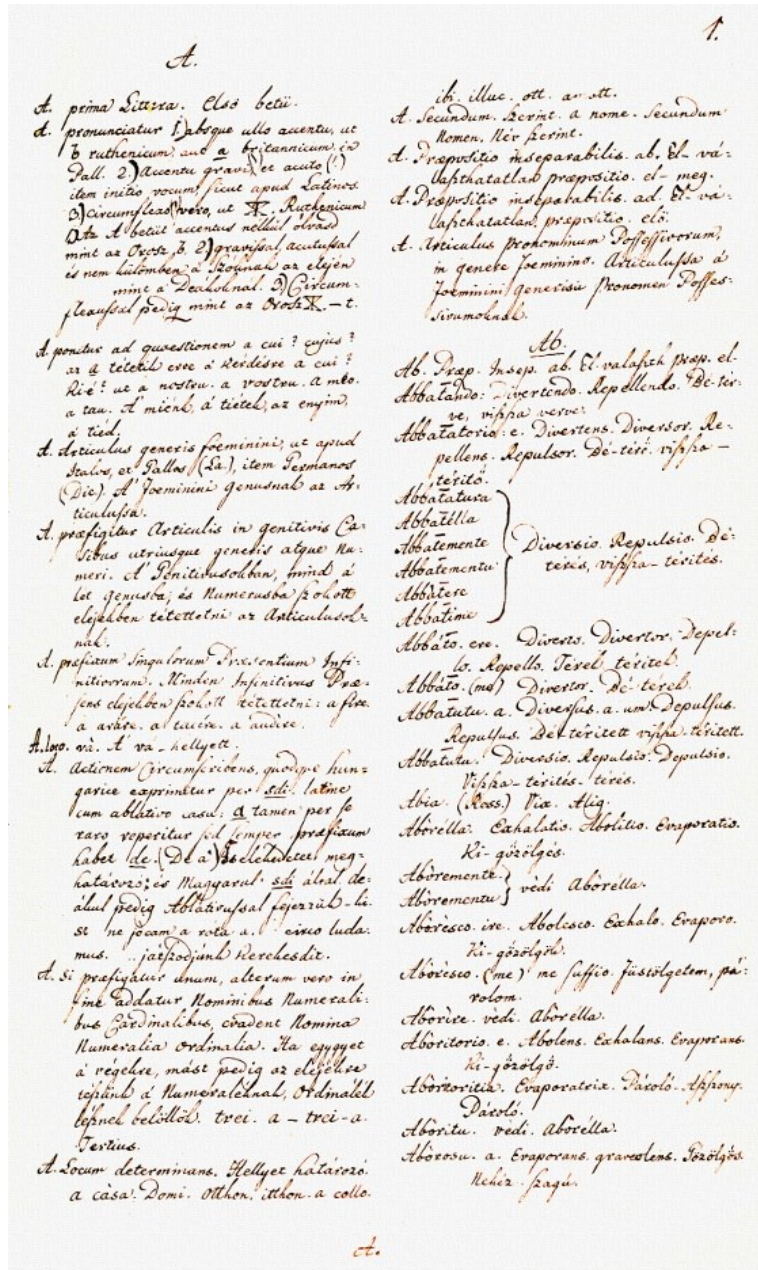 1.
A.
A. prima Littera. Első betü.
A. pronunciatur 1.) absque ullo accentu, ut
ъ ruthenicum, aut a britannicum in
Gall. 2.) Accentu gravi et acuto
item initio vocum, sicut apud Latinos
3.) Circumflexo vero, ut Ѫ. Ruthenicum
Az A betüt accentus nélkül olvasd
mint az Orosz ъ. 2.) gravissal, acutussal
és nem külömben á Szóknak az elején
mint á Deákoknál. 3.) Circum-
flexussal pedig mint az Orosz Ѫ. – t.
A ponitur ad quaestionem a cui? cujus?
az a tétetik erre á kérdésre a cui?
Ki-é? ut a nostru. a vostru. a meo.
a tau. A' miénk, á tiétek, az enyim,
á tiéd.
A. Articulus generis foeminini, ut apud
Italos, et Gallos (La), item Germanos
(Die). A' foeminini genusnak az Ar-
ticulussa.
A. praefigitur Articulis in genitivis Ca-
sibus utriusque generis atque Nu-
meri. A' Genitivusokban, mind á
két genusba, és Numerusba szokott
elejekben tétettetni az Articulusok-
nak.
A. praefixum singulorum Praesentium Infi-
nitivorum. Minden Infinitivus Prae-
sens elejekben szokott tétettetni: a fire.
a aráre. a tacére. a audire.
A. loco. và. A' vá-hellyett.
A. Actionem circumscribens, quodque hun-
garice exprimitur per sdi. latine
cum ablativo casu: a tamen per se
raro reperitur sed semper praefixum
habet de. (De a) Tselekedetet meg-
határozó; és Magyarul sdi által, de-
ákul pedig Ablativussal fejezzük-ki.
st ne jocam a rota a. circo luda-
mus. játszodjunk Kerekesdit.
A. Si praefigatur unum, alterum vero in
fine addatur Nominibus Numerali-
bus Cardinalibus, evadent Nomina
Numeralia Ordinalia. Ha eggyet
á végekre, mást pedig az elejekre
tészünk á Numeraléknak, Ordinalék
lésznek belöllök. trei. a – trei-a.
Tertius.
A. Locum determinans. Hellyet határozó.
a càsa. Domi. otthon. itthon. a collo.
ibi. illuc. ott. am ott.
A. Secundum. szerint. a nome. Secundum
Nomen. Név szerint.
A. Praepositio inseparabilis. ab. El-vá-
laszthatatlan praepositio. el- meg.
A. Praepositio inseparabilis. ad. El-vá-
laszthatatlan, praepositio. elö.
A. Articulus Pronominum Possessivorum,
in genere foeminino. Articulussa á
foeminini generisü Pronomen Posses-
sivumoknak.
Ab.
Ab. Praep. Insep. ab. El-valaszth praep. el-
Abbatando: Divertendo. Repellendo. De-tér-
ve, viszsza verve.
Abbatatorio. e. Divertens. Diversor. Re-
pellens. Repulsor. Dé-térő. viszsza –
téritő.
Abbatatura
Abbatélla
Abbatemente
Abbatementu
Abbàtere
Abbatime
Diversio. Repulsio. Dé-
térés, viszsza-térités.
Abbáto. ere. Diverto. Divertor. Depel-
lo. Repello. Térek téritek.
Abbáto. (me) Divertor. Dé-térek.
Abbatutu. a. Diversus. a. um. Depulsus.
Repulsus. Dé-téritett viszsza téritett.
Abbatutu. Diversio. Repulsio. Depulsio.
Viszsza-térités-térés.
Abia. (Ross.) Vix. Alig.
Aborélla. Exhalatio. Abolitio. Evaporatio.
Ki-gőzölgés.
Aboremente
Aborementu
vèdi Aborélla.
Aborésco. ire. Abolesco. Exhalo. Evaporo.
Ki-gőzölgök.
Aborésco. (me) me suffio. Füstölgetem, pá-
rolom.
Aborìre. vèdi. Aborélla.
Aboritorio. e. Abolens. Exhalans. Evaporans.
Ki-gőzölgő.
Aboritoritia. Evaporatrix. Pároló. Aszszony.
Pároló.
Aboritu. vèdi. Aborélla.
Aborosu. a. Evaporans. graveolens. Gőzölgős.
Nehéz-szagú.
A.